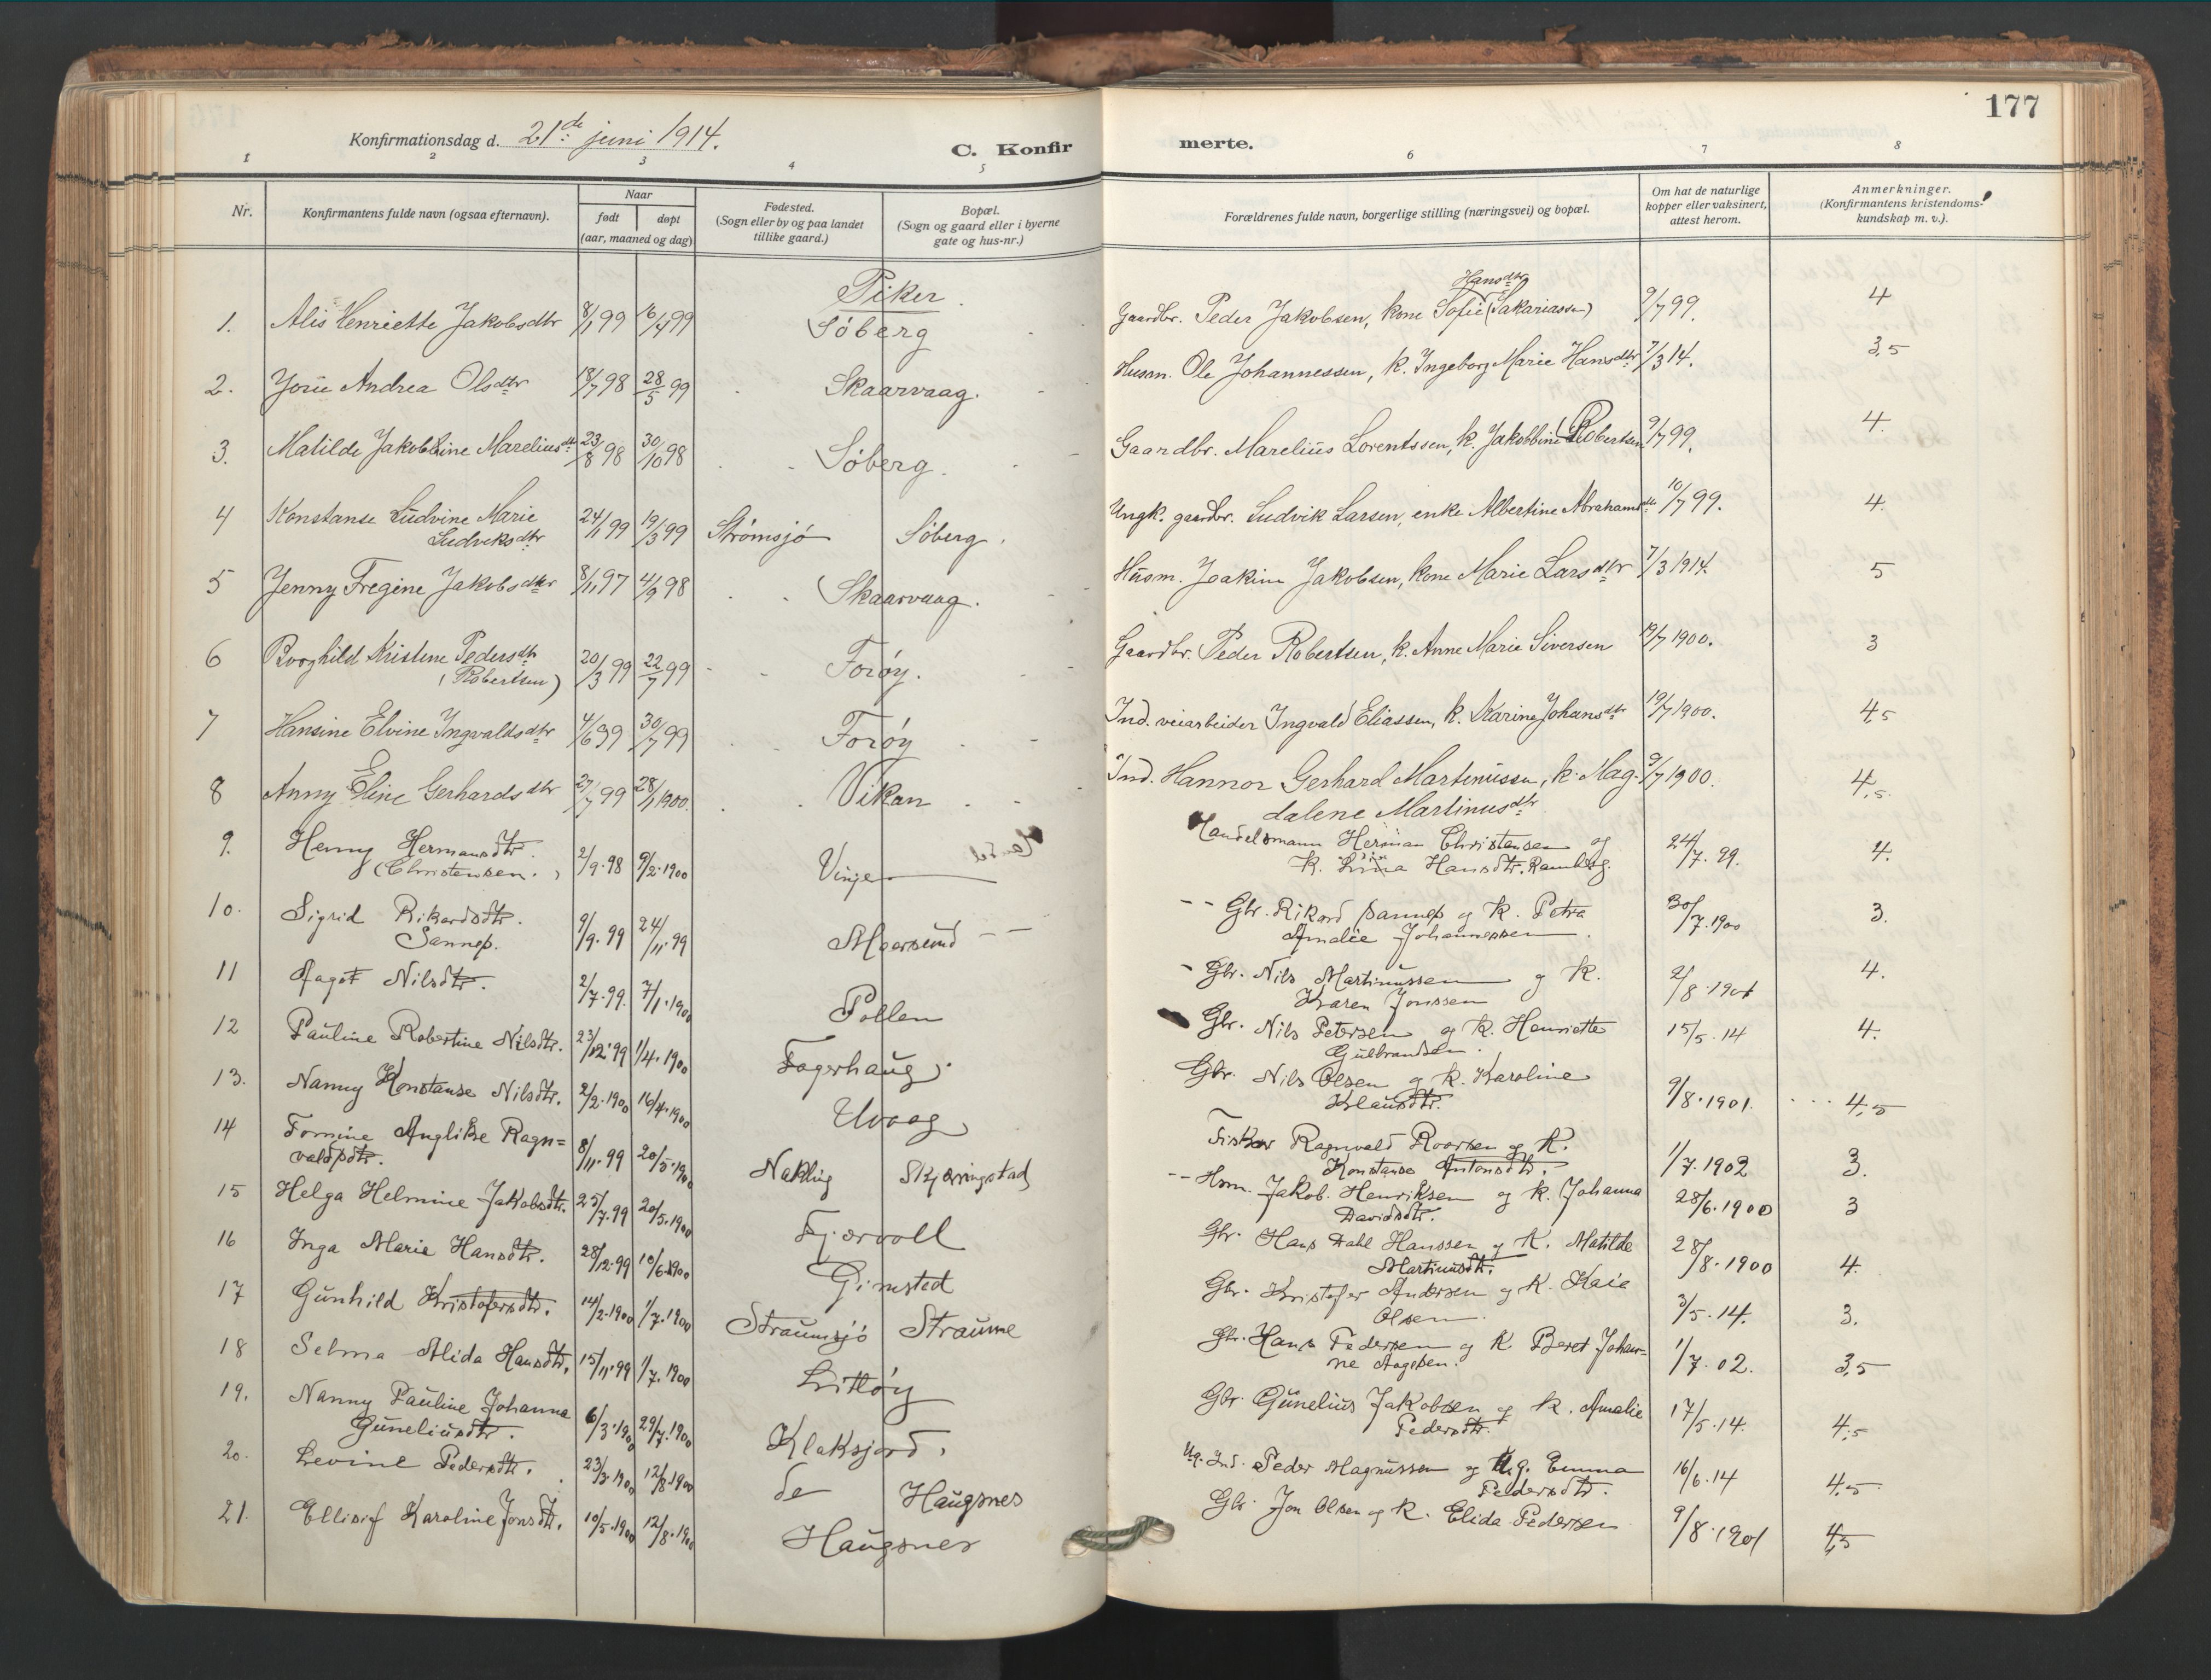 177
Konfirmationsdag d. 21de juni 1914.
C. Konfirmerte.
1 2 3 4 5 6 7 8
Nr. Konfirmantens fulde navn (ogsaa efternavn). Naar født døpt (aar, maaned og dag) Fødested. (Sogn eller by og paa landet tillike gaard.) Bopæl. (Sogn og gaard eller i byerne gate og hus-nr.) Forældrenes fulde navn, borgerlige stilling (næringsvei) og bopæl. Om hat de naturlige kopper eller vaksinert, attest herom. Anmerkninger. (Konfirmantens kristendomskundskap m. v.).
Piker.
1. Alis Henriette Jakobsdtr 8/1 99 16/4 99 Søberg Gaardbr. Peder Jakobsen, kone Sofie Hansdtr (Sakariassen) 9/7 99. 4
2. Andrea Olsdtr 18/7 98 28/5 99 Skaarvaag. Husm. Ole Johannessen, k. Ingeborg Marie Hansdtr 7/3 14. 3,5
3. Matilde Jakobbine Mareliusdtr 23/8 98 30/10 98 Søberg. Gaardbr. Marelius Lorentssen, k. Jakobbine Robertsen 9/7 99. 4.
4 Konstanse Ludvine Marie 24/1 99 19/3 99 Strømsjø Søberg. Ungk. gaardbr. Ludvik Larsen, enke Albertine Abrahamsdtr 10/7 99. 4.
Ludviksdtr
5 Jenny Fregine Jakobsdtr 8/11 97 4/9 98 Skaarvaag. Husm. Joakim Jakobsen, kone Marie Larsdtr 7/3 1914. 5
6 Borghild Kristine Pedersdtr 20/3 99 22/7 99 Forøy. Gaardbr. Peder Robertsen, k. Anne Marie Siversen 19/7 1900. 3
(Robertsen)
7 Hansine Elvine Ingvaldsdtr 4/6 99 30/7 99 Forøy Ind. veiarbeider Ingvald Eliassen, k. Karine Johansdtr 19/7 1900. 4,5
8 Anny Eline Gerhardsdtr 27/7 99 28/1 1900. Vikan Ind. Hannor Gerhard Martinussen, k. Mag- 9/7 1900. 4,5
dalene Martinusdtr
9. Henny Hermansdtr. 2/9. 98 9/2. 1900 Vinje Handelsmann Herman Christensen og 24/7. 99. 4.
(Christensen.) K. Hansdtr. Ramberg.
10. Sigrid Rikardsdtr. 9/9. 99 24/11. 99 Maarsund Gbr. Rikard Sannes og K. Petra 30/7. 1900 3.
Sannes. Amalie Johannessen.
11 Aagot Nilsdtr. 2/7. 99. 7/1. 1900 Pollen Gbr. Nils Martinussen og K. 2/8. 1901 4.
Karen Jonssen
12 Pauline Robertine Nilsdtr. 23/12. 99 1/4. 1900 Fagerhaug. Gbr. Nils Petersen og K. Henriette 15/5. 14 4.
Gulbrandsen.
13. Nanny Konstanse Nilsdtr. 2/2. 1900 16/4. 1900 Uvaag Gbr. Nils Olsen og K. Karoline 9/8. 1901. 4,5
Klausdtr.
14 Tomine Anglike Ragn= 8/11. 99 20/5. 1900 Nakling Skjæringstad Fisker Ragnvald Roarsen og K. 1/7. 1902 3.
valdsdtr. Konstanse Antonsdtr.
15 Helga Helmine Jakobsdtr. 25/7. 99 20/5. 1900 Fjærvoll Hsm. Jakob Henriksen og K. Johanna 28/6. 1900 3
Davidsdtr.
16 Inga Marie Hansdtr. 28/12. 99 10/6. 1900 Gimsted Gbr. Hans Dahl Hanssen og K. Matilde 28/8. 1900 4.
Martinusdtr.
17 Gunhild Kristofersdtr. 14/2. 1900 1/7. 1900 Straumsjø Straume Gbr. Kristofer Andersen og K. Kaia 3/5. 14. 3.
Olsen.
18 Selma Alida Hansdtr. 15/11. 99 1/7. 1900 Litløy Gbr. Hans Pedersen og K. Beret Johan= 1/7. 02. 3,5
ne Aagesen.
19. Nanny Pauline Johanna 6/3. 1900 29/7. 1900 Klaksjord. Gbr. Gunelius Jakobsen og K. Amalie 17/5. 14. 4,5
Guneliusdtr. Pedersdtr.
20. Levine Pedersdtr. 23/3. 1900 12/8 1900 do Haugsnes Ug. Ind. Peder Magnussen og Ug. Emma 16/6. 14 4.5
Pedersdtr.
21. Ellisif Karoline Jonsdtr. 10/5. 1900 12/8. 1900 Haugsnes Gbr. Jon Olsen og K. Elida Pedersen 9/8. 1901 4,5